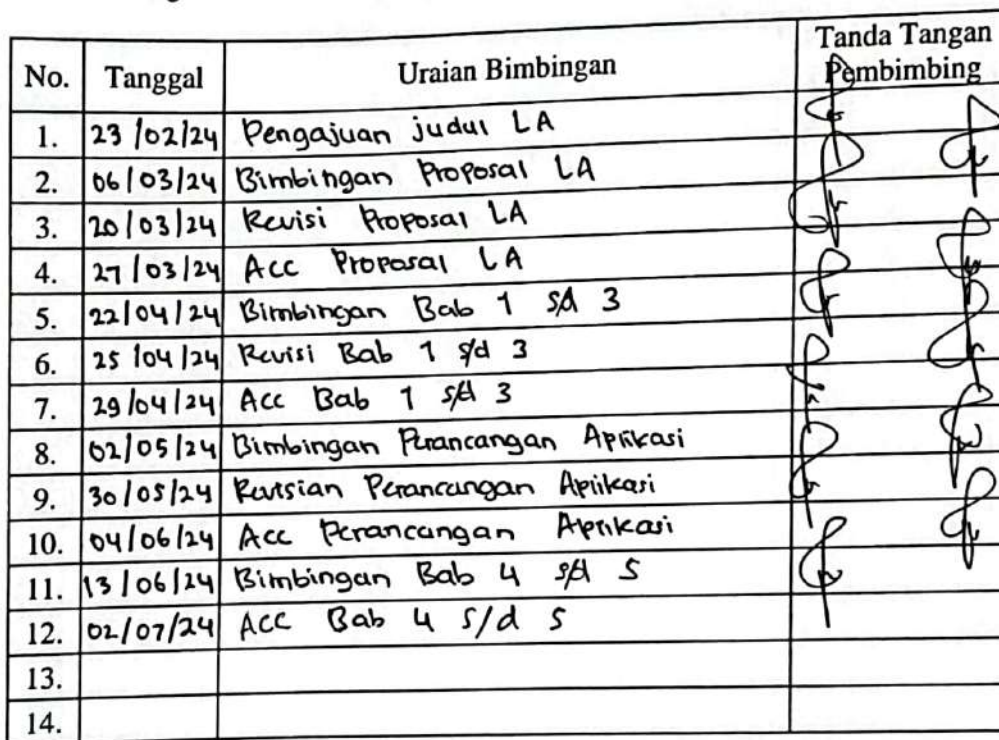 No. Tanggal Uraian Bimbingan Tanda Tangan Pembimbing
1. 23/02/24 Pengajuan judul LA
2. 06/03/24 Bimbingan Proposal LA
3. 20/03/24 Revisi Proposal LA
4. 27/03/24 Acc Proposal LA
5. 22/04/24 Bimbingan Bab 1 s/d 3
6. 25/04/24 Revisi Bab 1 s/d 3
7. 29/04/24 Acc Bab 1 s/d 3
8. 02/05/24 Bimbingan Perancangan Aplikasi
9. 30/05/24 Revisian Perancangan Aplikasi
10. 04/06/24 Acc Perancangan Aplikasi
11. 13/06/24 Bimbingan Bab 4 s/d 5
12. 02/07/24 Acc Bab 4 s/d 5
13.
14.